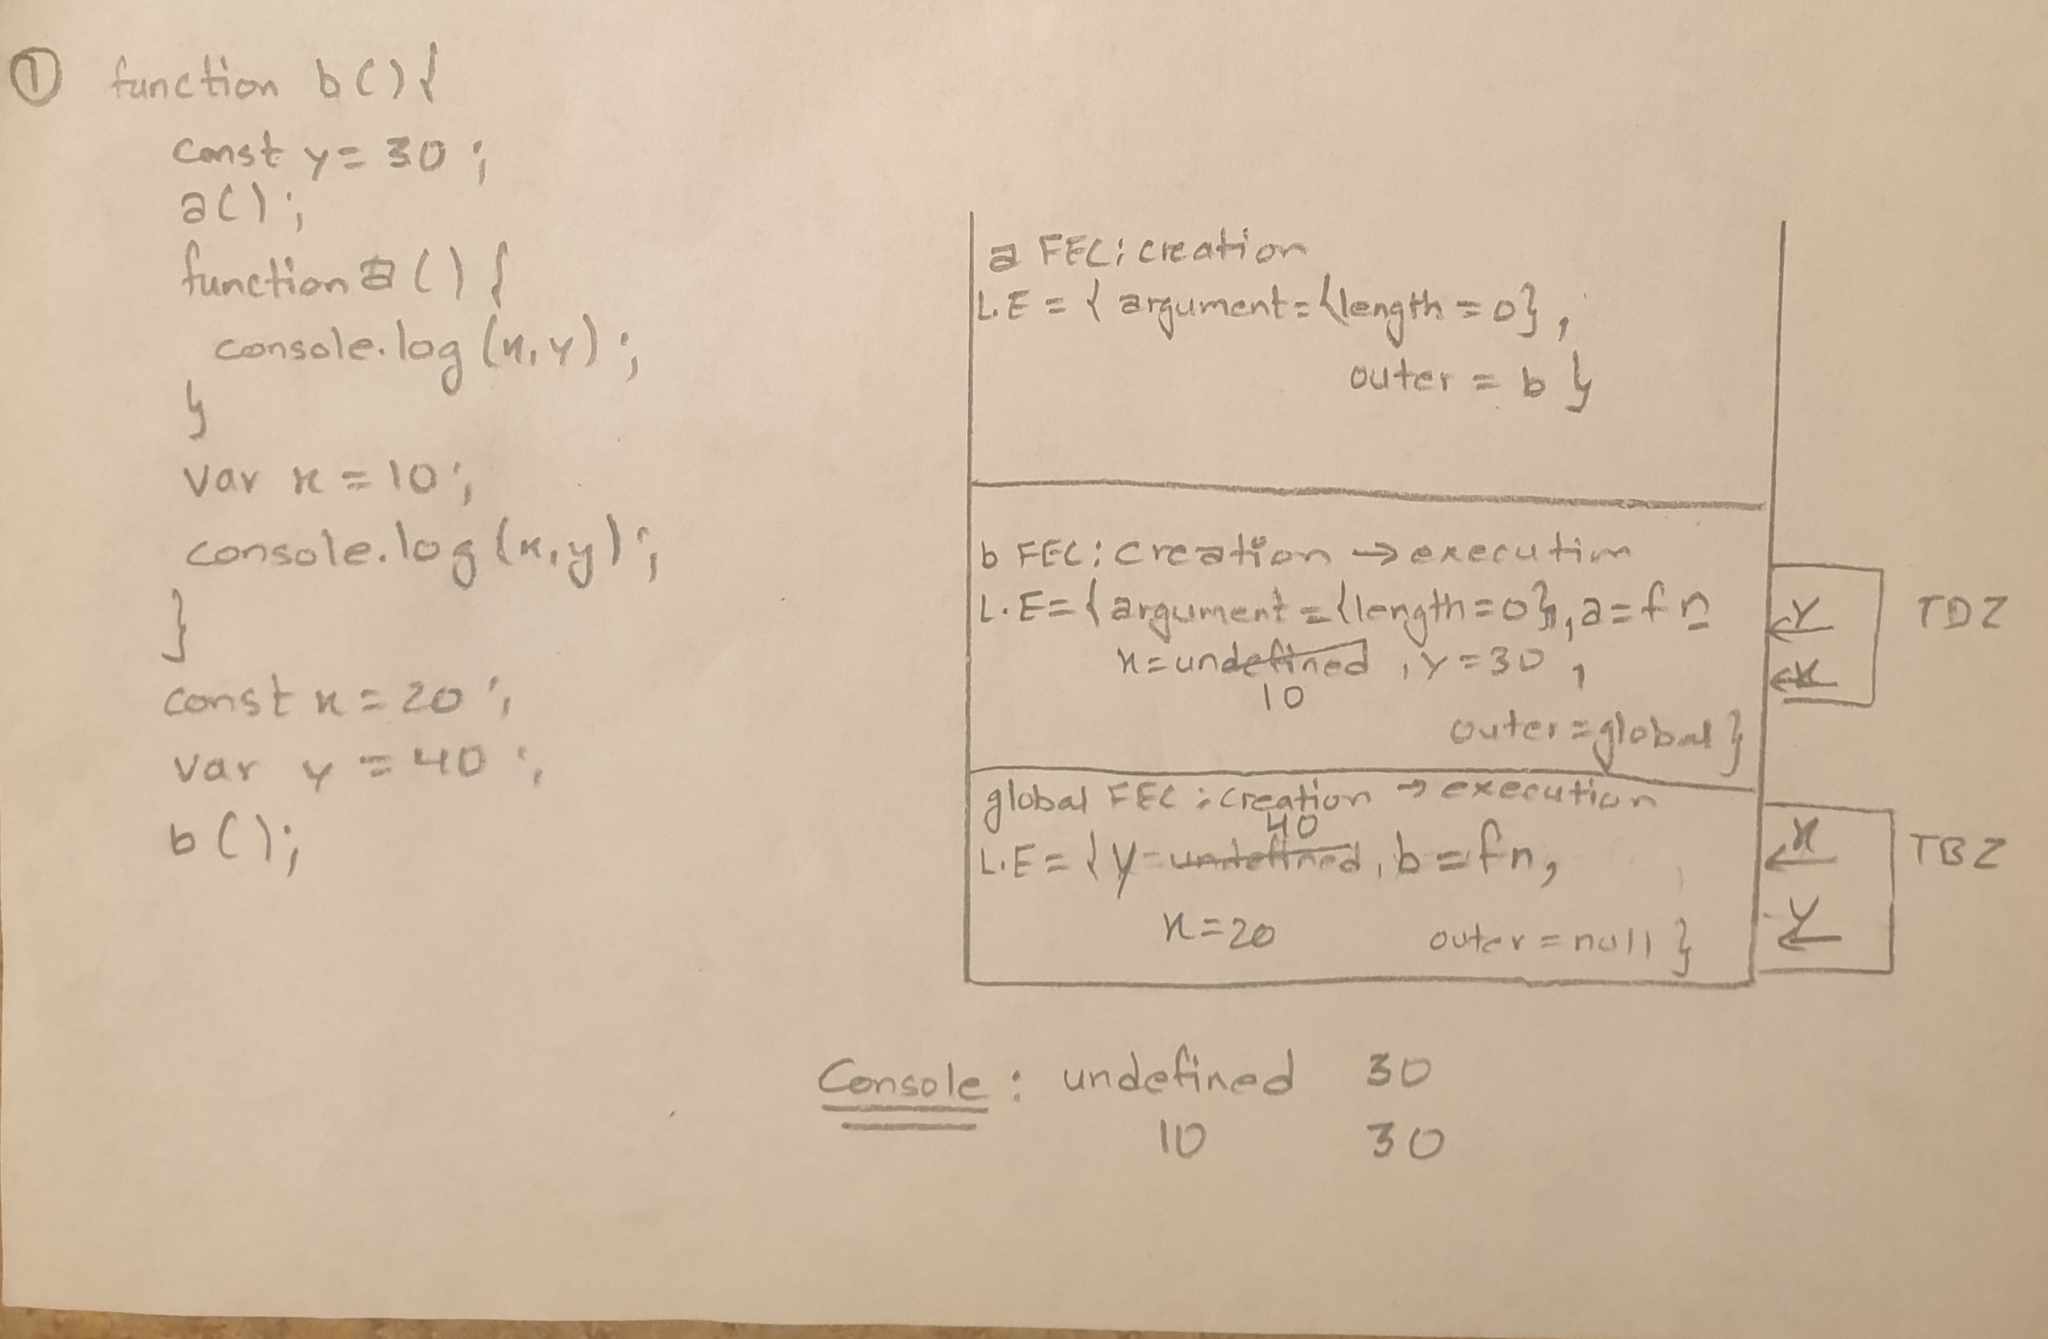 ① function b() {
const y = 30 ;
a() ;
function a () {
console.log (x, y) ;
}
var x = 10 ;
console.log (x, y) ;
}
const x = 20 ;
var y = 40 ;
b() ;
a FEC : creation
L.E = { argument = {length = 0} ,
outer = b }
b FEC : creation → execution
L.E = { argument = {length = 0}, a = fn
x = undefined , y = 30 ,
10
outer = global }
Y TDZ
x
global FEC : creation → execution
40
L.E = { y = undefined , b = fn,
x = 20 outer = null }
x TBZ
Y
Console : undefined 30
10 30